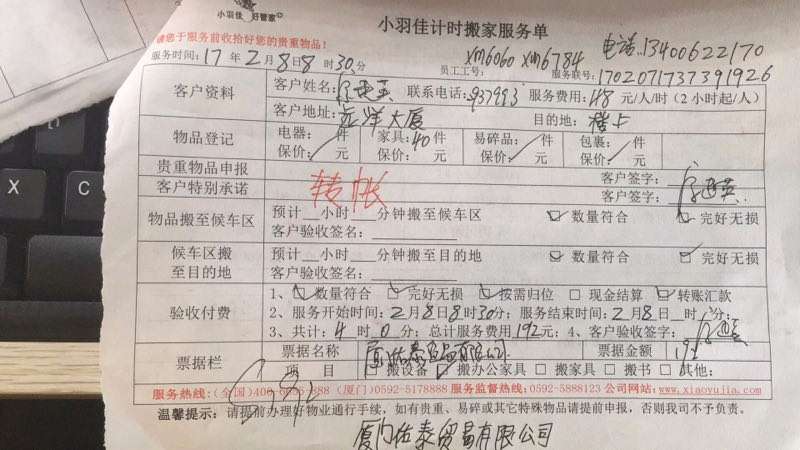 小羽佳 好管家
小羽佳计时搬家服务单
请您于服务前收拾好您的贵重物品!
电话:13400622170
服务时间:17年2月8日8时30分 员工工号:xm6060 xm6784 服务联号:1702071737391926
客户资料
客户姓名: 联系电话:937993 服务费用:48元/人/时(2小时起/人)
客户地址:远洋大厦 目的地:楼上
物品登记
电器: 件 家具:40件 易碎品: 件 包裹: 件
保价: 元 保价: 元 保价: 元 保价: 元
贵重物品申报 客户签字:
客户特别承诺 转帐 客户签字:
物品搬至候车区
预计__小时__分钟搬至候车区 数量符合 完好无损
客户验收签名:
候车区搬至目的地
预计__小时__分钟搬至目的地 数量符合 完好无损
客户验收签名:
验收付费
1、数量符合 完好无损 按需归位 现金结算 转账汇款
2、服务开始时间:2月8日8时30分;服务结束时间:2月8日 时 分;
3、共计:4时0分;总计服务费用192元;4、客户验收签字:
票据栏
票据名称 票据金额 192
项目 搬设备 搬办公家具 搬家具 搬书 其他:
服务热线:(全国)400 (厦门)0592-5178888 服务监督热线:0592-5888123 公司网站:www.xiaoyujia.com
温馨提示:请提前办理好物业通行手续,如有贵重、易碎或其它特殊物品请提前申报,否则我司不予负责。
厦门佑泰贸易有限公司